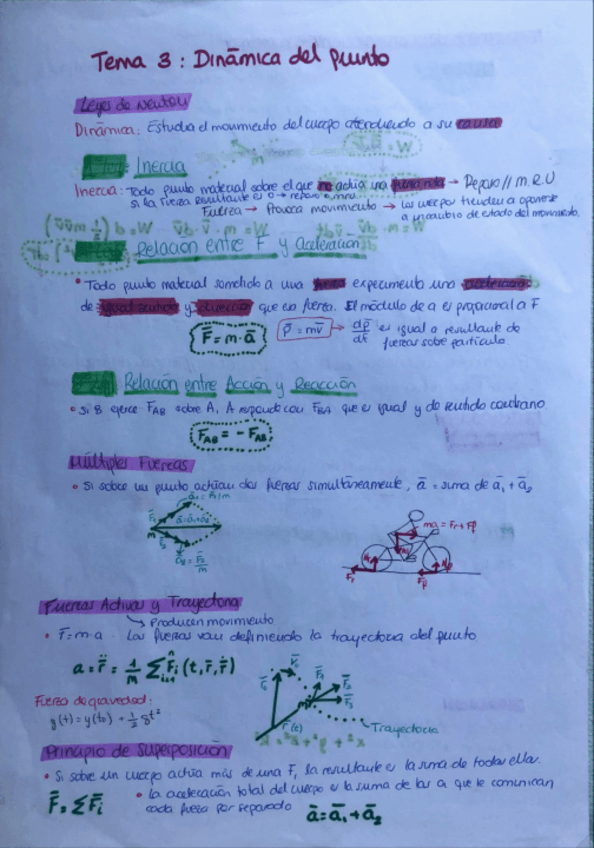 Tema 3: Dinámica del punto
Leyes de Newton
Dinámica: Estudia el movimiento del cuerpo atendiendo a su causa
Inercia
Inercia: Todo punto material sobre el que no actúa una fuerza neta → Reposo // M.R.U
si la fuerza resultante es 0 → reposo o mru
Fuerza → Provoca movimiento → Los cuerpos tienden a oponerse
a un cambio de estado del movimiento.
Relación entre F y aceleración
• Todo punto material sometido a una fuerza experimenta una aceleración
de igual sentido y dirección que esa fuerza. El módulo de a es proporcional a F
F̄ = m·ā
p̄ = mv̄ → dp̄/dt es igual a resultante de
fuerzas sobre partícula.
Relación entre Acción y Reacción
• Si B ejerce F_AB sobre A, A responde con F_BA que es igual y de sentido contrario.
F̄_AB = - F̄_AB
Múltiples Fuerzas
• Si sobre un punto actúan dos fuerzas simultáneamente, ā = suma de ā₁ + ā₂
ā₁ = F̄₁/m
F̄₁
ā = ā₁ + ā₂
F̄₂
ā₂ = F̄₂/m
Fuerzas Activas y Trayectoria
Producen movimiento
• F̄ = m·a · Las fuerzas van definiendo la trayectoria del punto
a = r̈ = 1/m Σ F̄i (t, r̄, ṙ)
Fuerza de gravedad:
y(t) = y(t₀) + ½ gt²
F̄₁
F̄₂
F̄₃
m
r̄(t)
Trayectoria
Principio de Superposición
• Si sobre un cuerpo actúa más de una F, la resultante es la suma de todas ellas.
F̄ = Σ F̄i
• La aceleración total del cuerpo es la suma de las a que le comunican
cada fuerza por separado
ā = ā₁ + ā₂